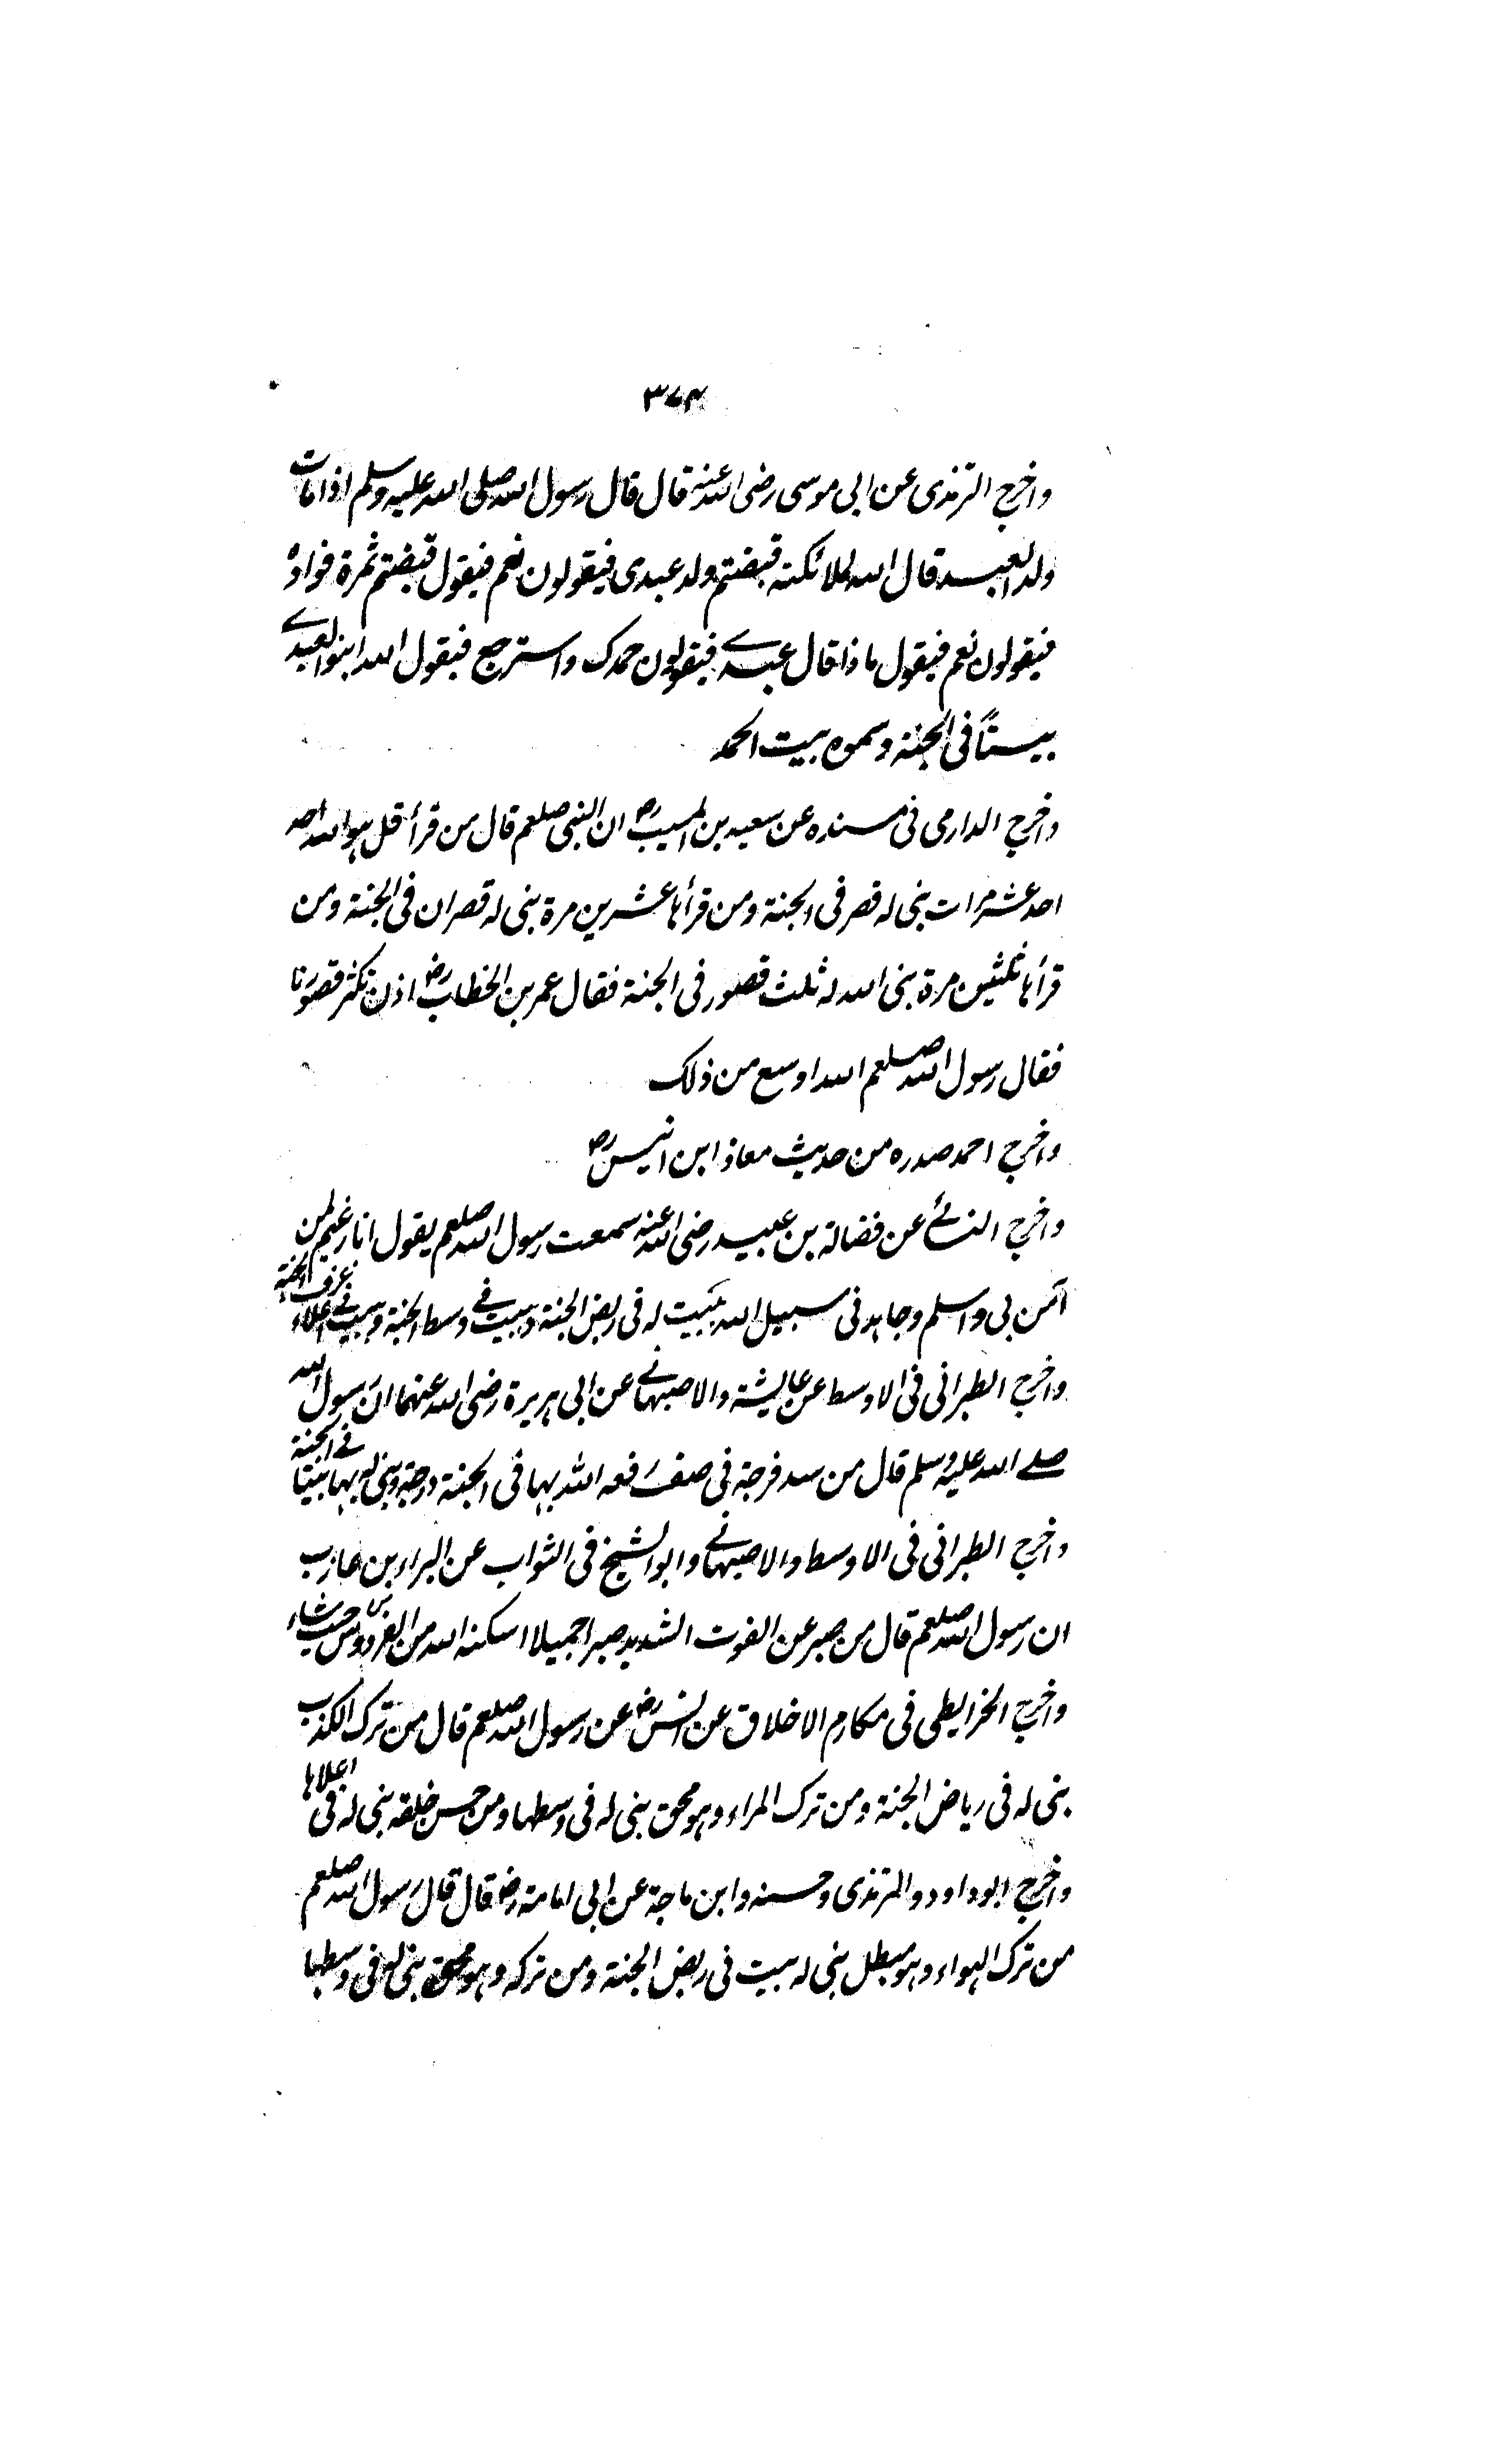 ۳۷۴
واخرج الترمذی عن ابی موسی رضی الله عنه قال قال رسول الله صلی الله علیه وسلم اذا مات
ولد العبد قال الله لملائکته قبضتم ولد عبدی فیقولون نعم فیقول قبضتم ثمرة فواده
فیقولون نعم فیقول ماذا قال عبدے فیقولون حمدک واسترجع فیقول الله ابنوا لعبدے
بیتاً فی الجنة وسموه بیت الحمد
واخرج الدارمی فی مسنده عن سعید بن المسیب رض ان النبی صلعم قال من قرأ قل ہو الله احد
احد عشر مرات بنی له قصر فی الجنة ومن قرأہا عشرین مرة بنی له قصران فی الجنة ومن
قرأہا ثلثین مرة بنی الله له ثلث قصور فی الجنة فقال عمر بن الخطاب رض اذن نکثر قصورنا
فقال رسول الله صلعم الله اوسع من ذلک
واخرج احمد صدره من حدیث معاذ ابن انیس رض
واخرج النسائے عن فضالة بن عبید رضی الله عنه سمعت رسول الله صلعم یقول انا زعیم لمن
آمن بی واسلم وجاہد فی سبیل الله ببیت له فی ربض الجنة وبیت فے وسط الجنة وبیت فے اعلاء غرف الجنة
واخرج الطبرانی فی الاوسط عن عایشة والاصبہانے عن ابی ہریرة رضی الله عنہما ان رسول الله
صلے الله علیه وسلم قال من سد فرجة فی صف رفعه الله بہا فی الجنة درجة وبنی له بہا بیتا فے الجنة
واخرج الطبرانی فی الاوسط والاصبہانے وابوالشیخ فی الثواب عن البراء بن عازب
ان رسول الله صلعم قال من صبر عن القوت الشدید صبرا جمیلا اسکنه الله من الفردوس حیث شاء
واخرج الخرایطی فی مکارم الاخلاق عن انس رض عن رسول الله صلعم قال من ترک الکذب
بنی له فی ریاض الجنة ومن ترک المراء وہو محق بنی له فی وسطہا ومن حسن خلقه بنی له فی اعلاہا
واخرج ابوداود والترمذی وحسنه وابن ماجة عن ابی امامة رض قال قال رسول الله صلعم
من ترک الہواء وہو مبطل بنی له بیت فی ربض الجنة ومن ترکه وہو محق بنی له فی وسطہا